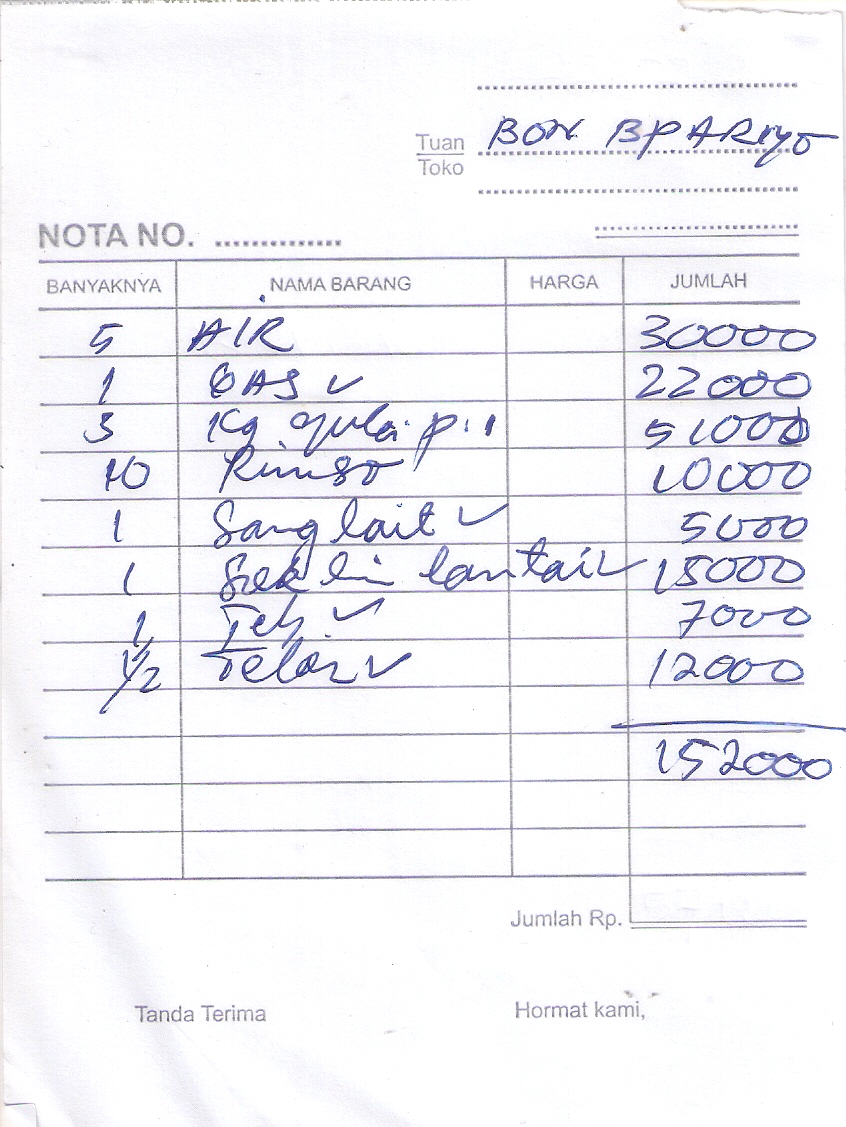 Tuan BON BPARIYO
Toko
NOTA NO. ..............
BANYAKNYA NAMA BARANG HARGA JUMLAH
5 AIR 30000
1 GAS ✓ 22000
3 Kg gula p 51000
10 Rinso 10000
1 Sanglait ✓ 5000
1 Soklin lantai ✓ 15000
1 Teh ✓ 7000
1/2 Telor ✓ 12000
152000
Jumlah Rp.
Tanda Terima Hormat kami,